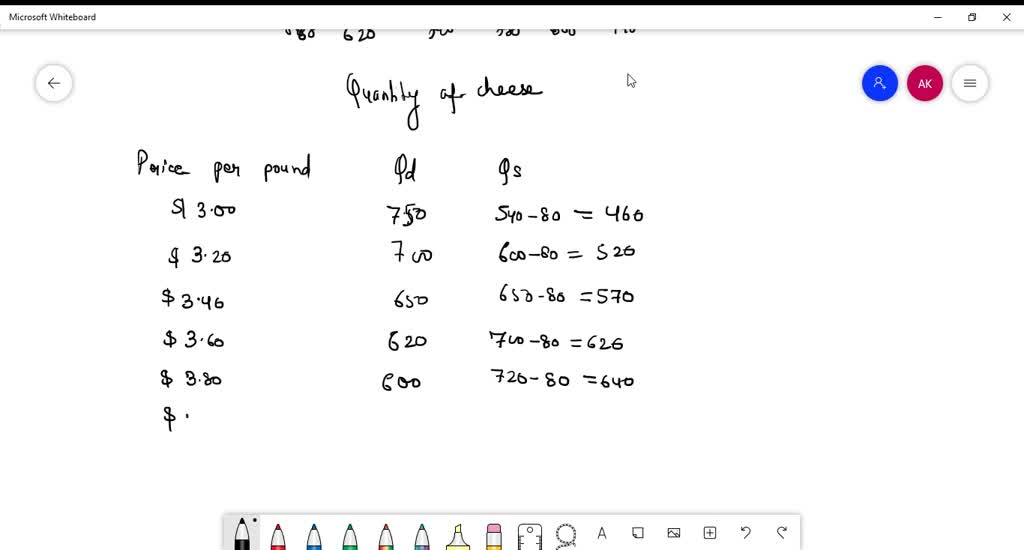 Microsoft Whiteboard
80 620
Quantity of cheese
AK
Price per pound Qd Qs
$ 3.00 750 540-80 = 460
$ 3.20 700 600-80 = 520
$ 3.40 650 650-80 = 570
$ 3.60 620 700-80 = 620
$ 3.80 600 720-80 = 640
$ .
A